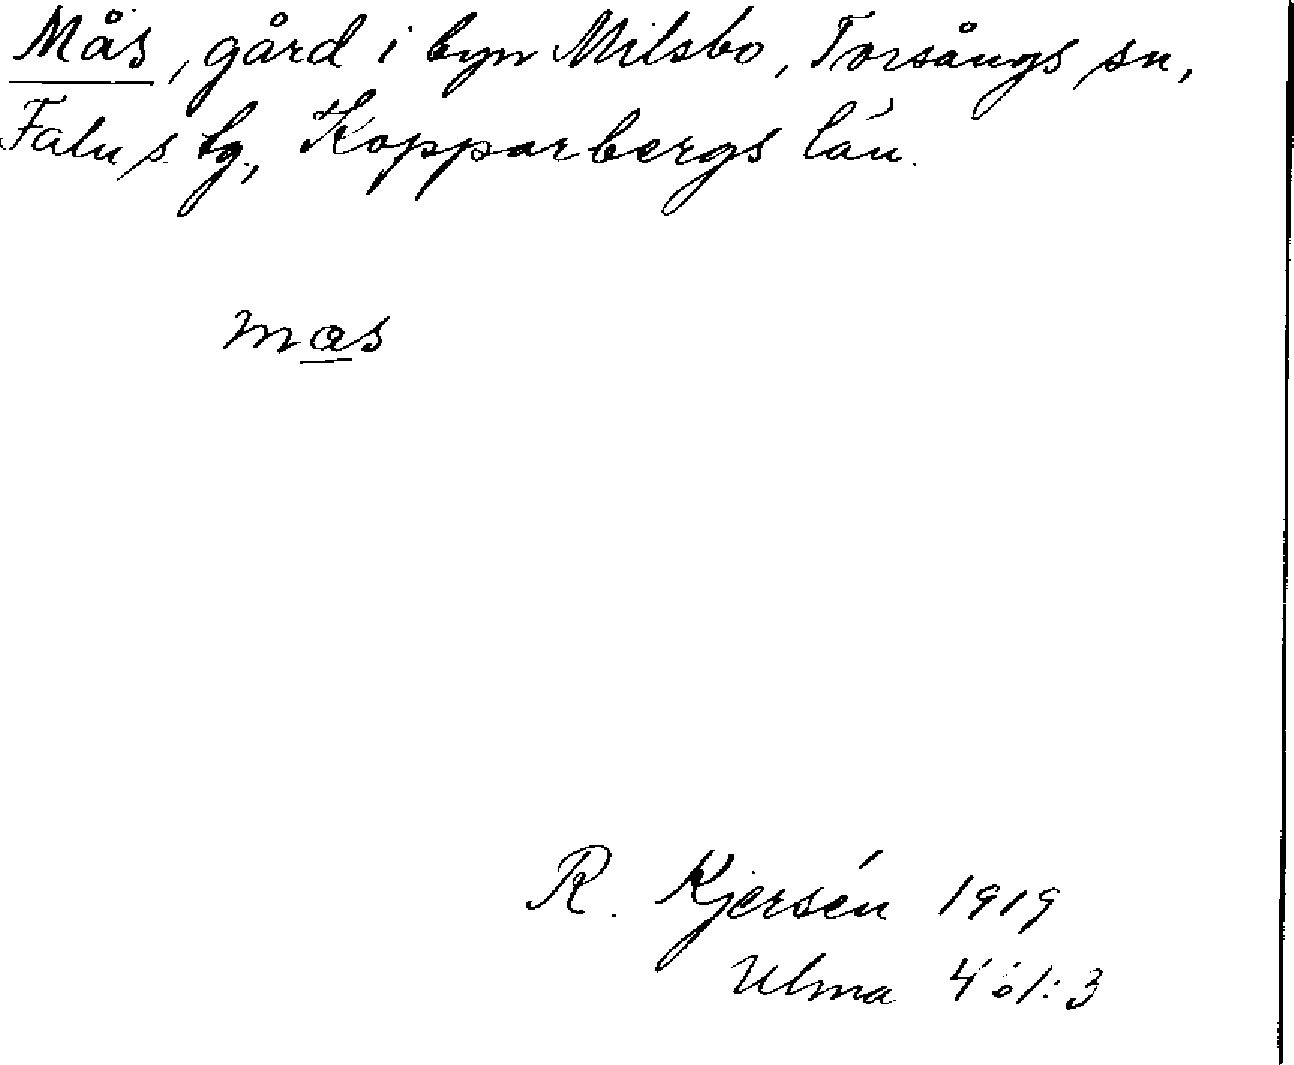 Mås, gård i byn Milsbo, Torsångs sn,
Falu s. lg., Kopparbergs län.
mas
R. Kjersén 1919
Ulma